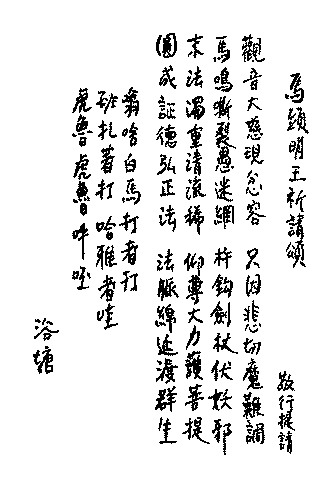 馬頭明王祈請頌
敬行提請
觀音大慈現忿容　只因悲切魔難調
馬鳴嘶裂愚迷網　杵鉤劍杖伏妖邪
末法濁重清流稀　仰尊大力護菩提
圓成証德弘正法　法脈綿延渡群生
翁哈白馬打者打
砂扎著打哈雅者哇
虎魯虎魯吽哇
浴塘